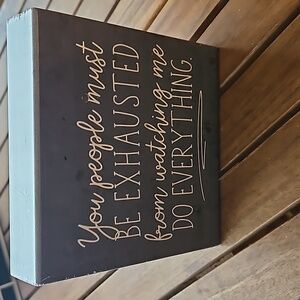 You people must
BE EXHAUSTED
from watching me
DO EVERYTHING.